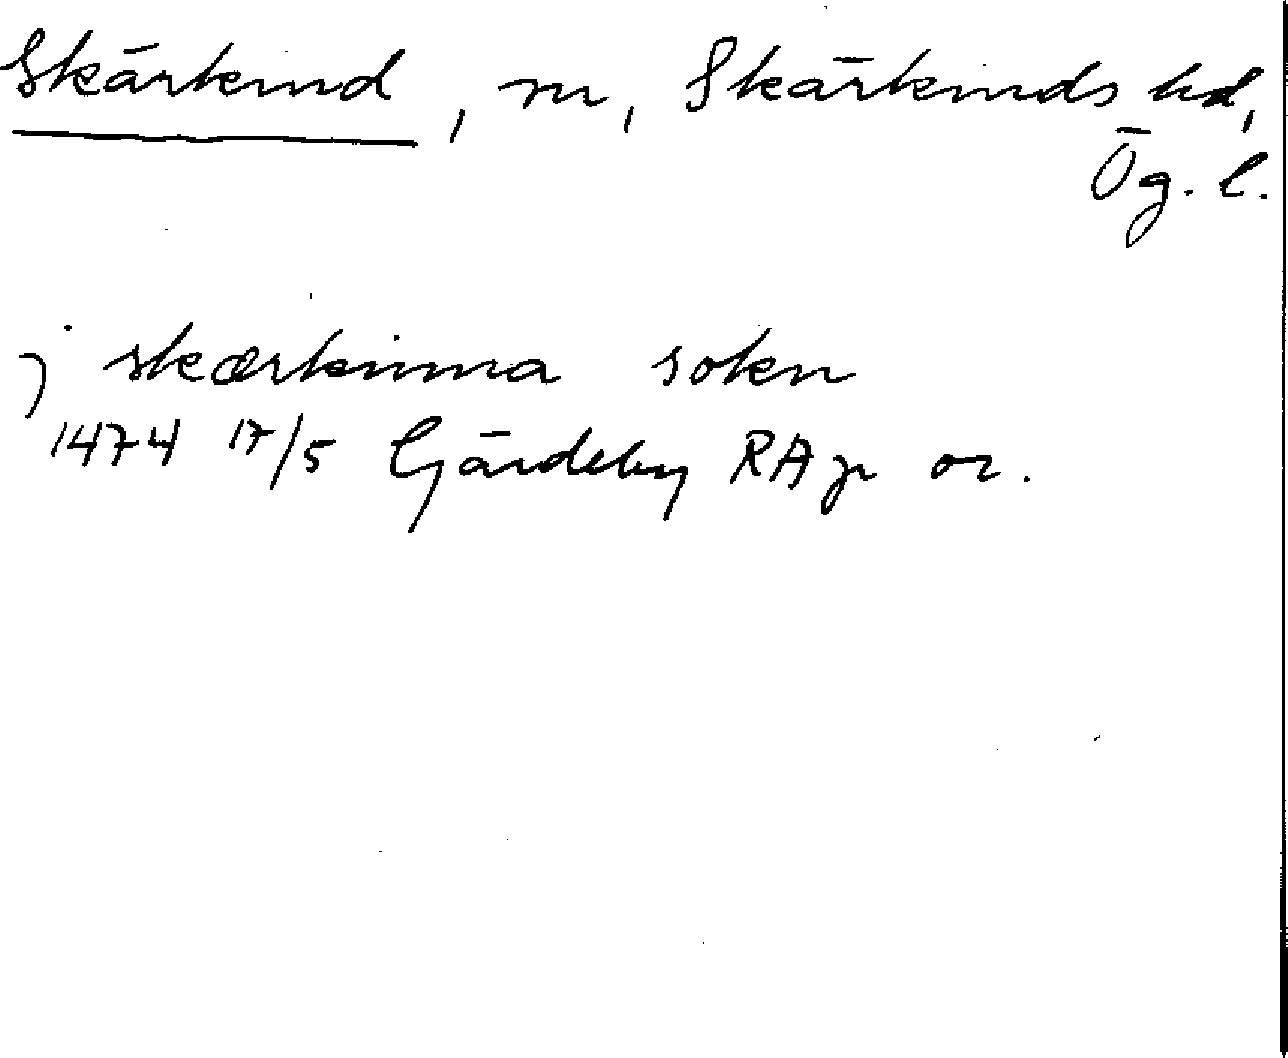 Skärkind, sn, Skärkinds hd,
Ög. l.
j skærkinna sokn
1474 17/5 Gärdeby RAp or.